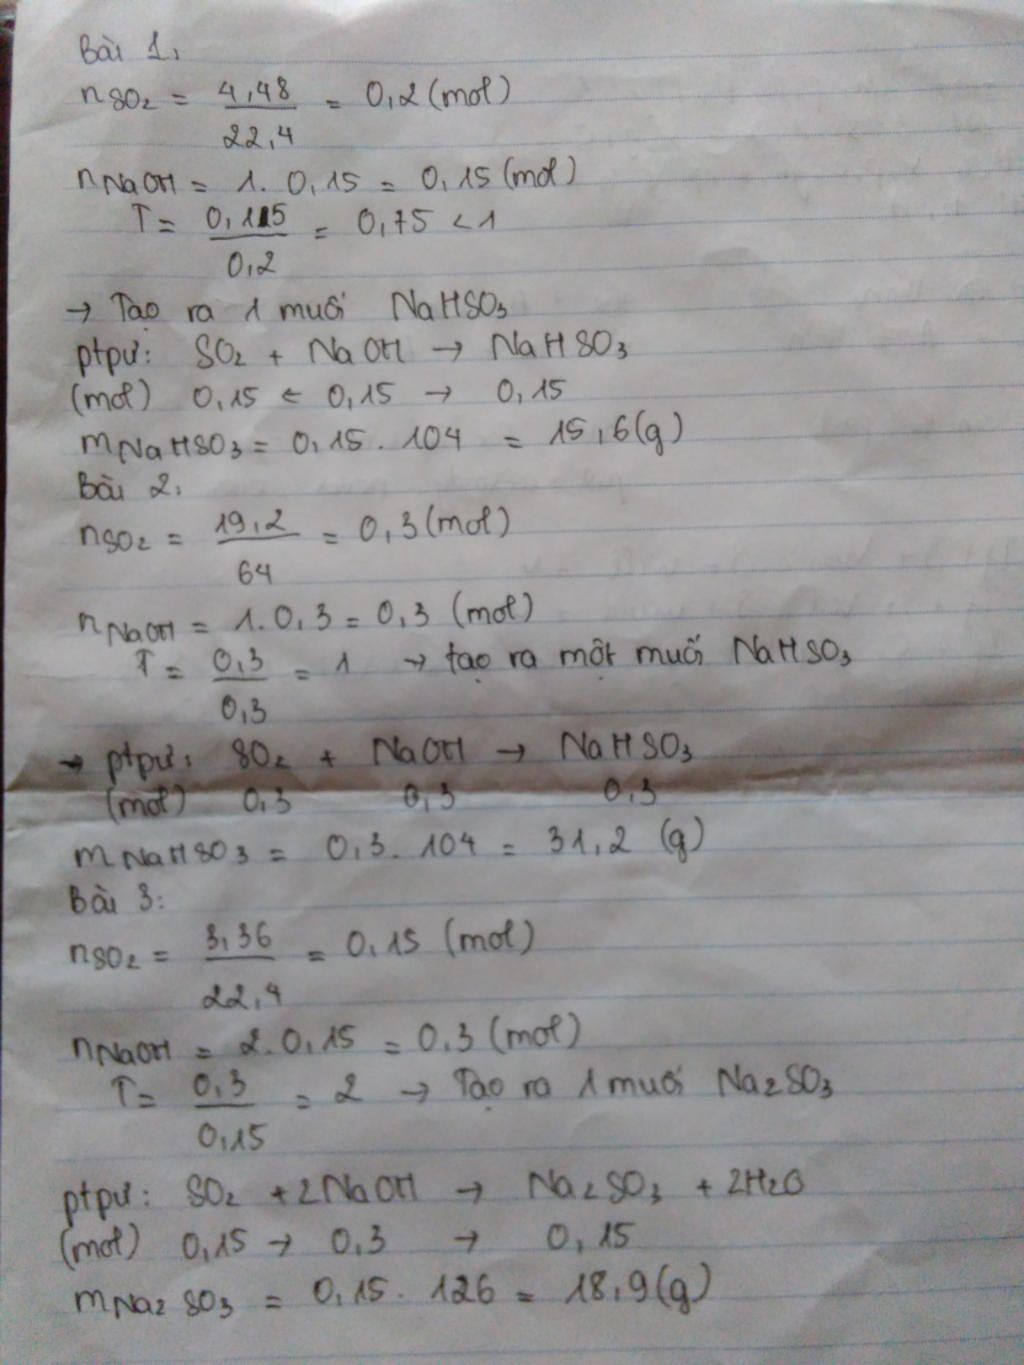 Bài 1,
nSO2 = 4,48/22,4 = 0,2 (mol)
nNaOH = 1. 0,15 = 0,15 (mol)
T = 0,15/0,2 = 0,75 < 1
→ Tạo ra 1 muối NaHSO3
ptpư: SO2 + NaOH → NaHSO3
(mol) 0,15 ← 0,15 → 0,15
mNaHSO3 = 0,15. 104 = 15,6(g)
Bài 2,
nSO2 = 19,2/64 = 0,3 (mol)
nNaOH = 1. 0,3 = 0,3 (mol)
T = 0,3/0,3 = 1 → tạo ra một muối NaHSO3
→ ptpư: SO2 + NaOH → NaHSO3
(mol) 0,3 0,3 0,3
mNaHSO3 = 0,3. 104 = 31,2 (g)
Bài 3:
nSO2 = 3,36/22,4 = 0,15 (mol)
nNaOH = 2. 0,15 = 0,3 (mol)
T = 0,3/0,15 = 2 → Tạo ra 1 muối Na2SO3
ptpư: SO2 + 2NaOH → Na2SO3 + 2H2O
(mol) 0,15 → 0,3 → 0,15
mNa2SO3 = 0,15. 126 = 18,9(g)